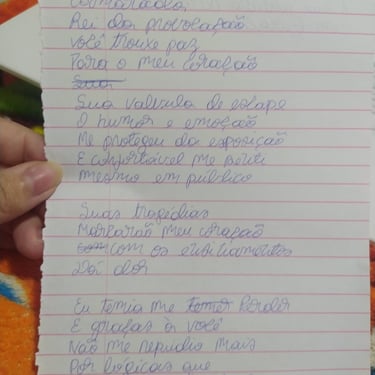 Rei da provocação
você trouxe paz
Para o meu coração
Sua valvula de escape
O humor e emoção
Me protegeu da exposição
E confortável me senti
mesmo em público
Suas tragédias
Marcarão meu coração
com os ensinamentos
Eu temia me perder
E graças à você
Não me repudio mais
Por lógicas que